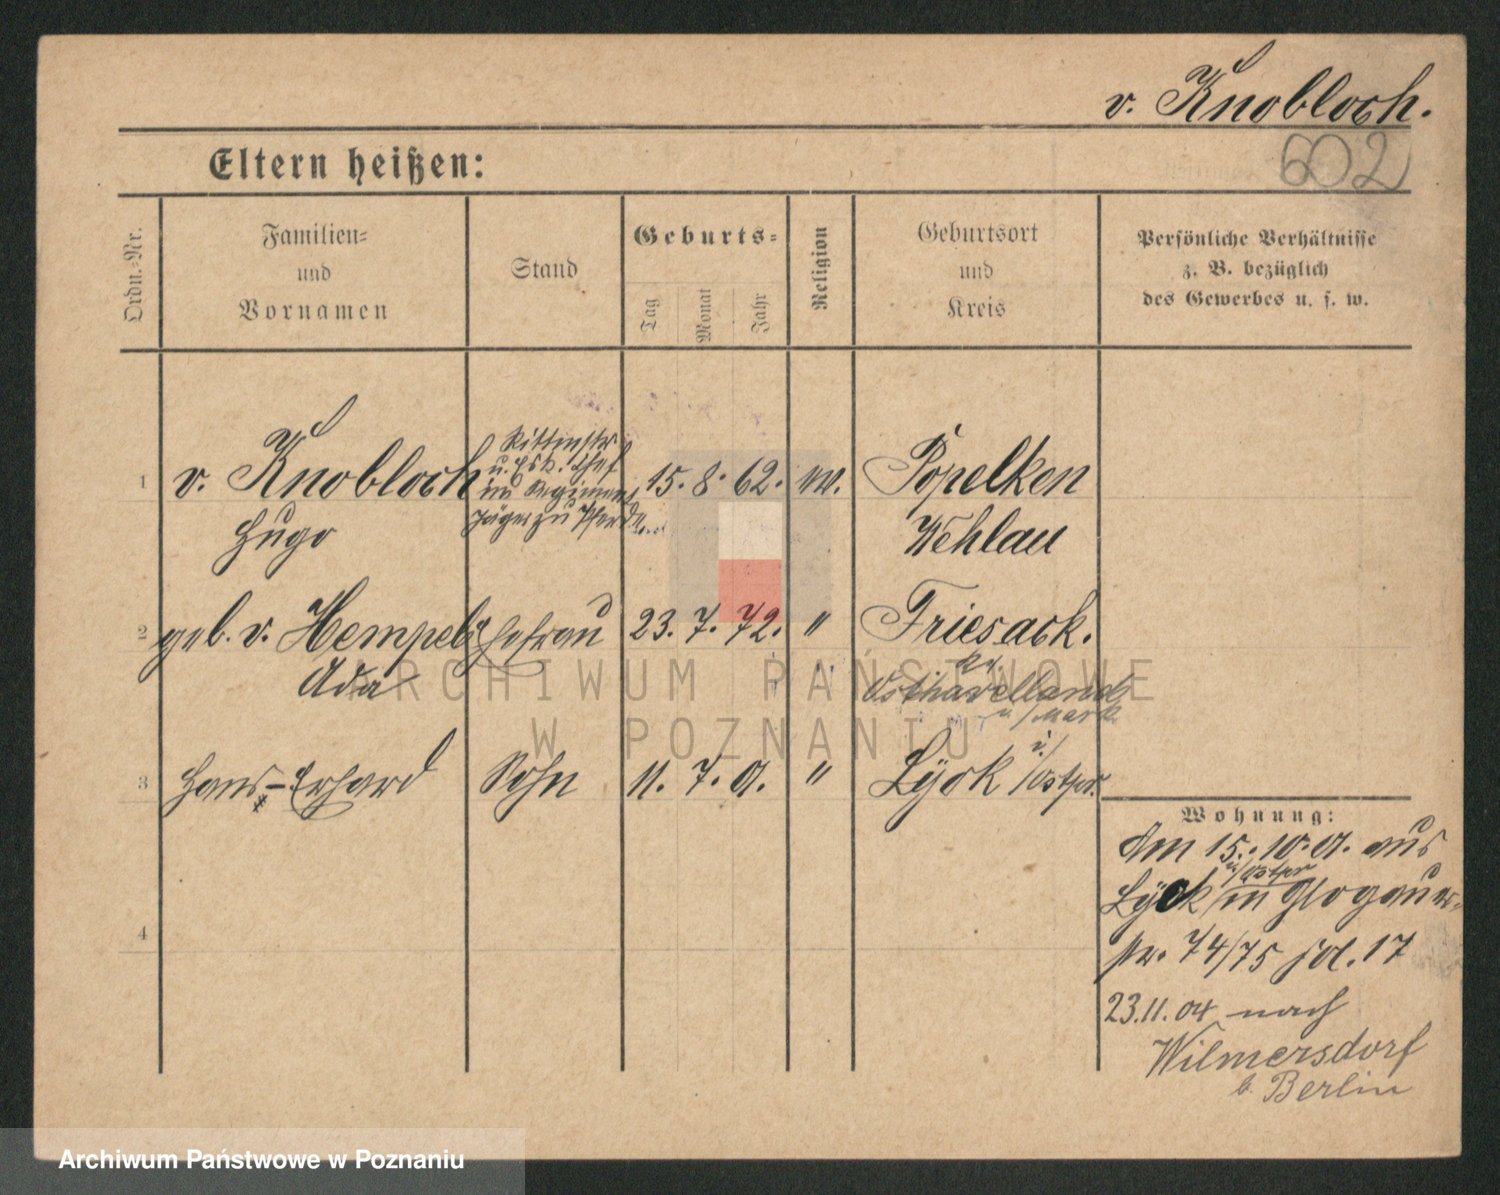 v. Knobloch.
602
Eltern heißen:
Ordn.=Nr.
Familien=
und
Vornamen
Stand
Geburts=
Tag
Monat
Jahr
Religion
Geburtsort
und
Kreis
Persönliche Verhältnisse
z. B. bezüglich
des Gewerbes u. s. w.
1
v. Knobloch
Hugo
Rittmstr
u. Esk. Chef
im Regiment
Jäger zu Pferde
15. 8. 62.
ev.
Popelken
Wehlau
2
geb. v. Hempel
Ada
Ehefrau
23. 7. 72.
"
Friesack.
Kr.
Osthavelland
Mark
3
Hans-Erhard
Sohn
11. 7. 01.
"
Lyck i/Ostpr.
4
Wohnung:
Am 15. 10. 01. aus
i/Ostpr
Lyck in Glogauer-
str. 74/75 jol. 17
23.11.04 nach
Wilmersdorf
b. Berlin
ARCHIWUM PAŃSTWOWE
W POZNANIU
Archiwum Państwowe w Poznaniu